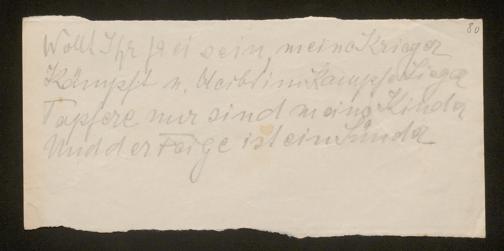 80
Wollt Ihr frei sein, meine Krieger
Kämpft u. bleibt im Kampfe Sieger
Tapfere nur sind meine Kinder
Und der Feige ist ein Sünder